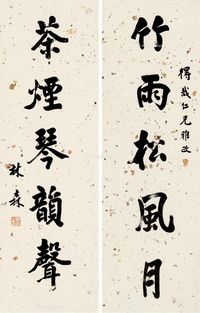 竹雨松風月
仁兄雅政
茶煙琴韻聲
林森